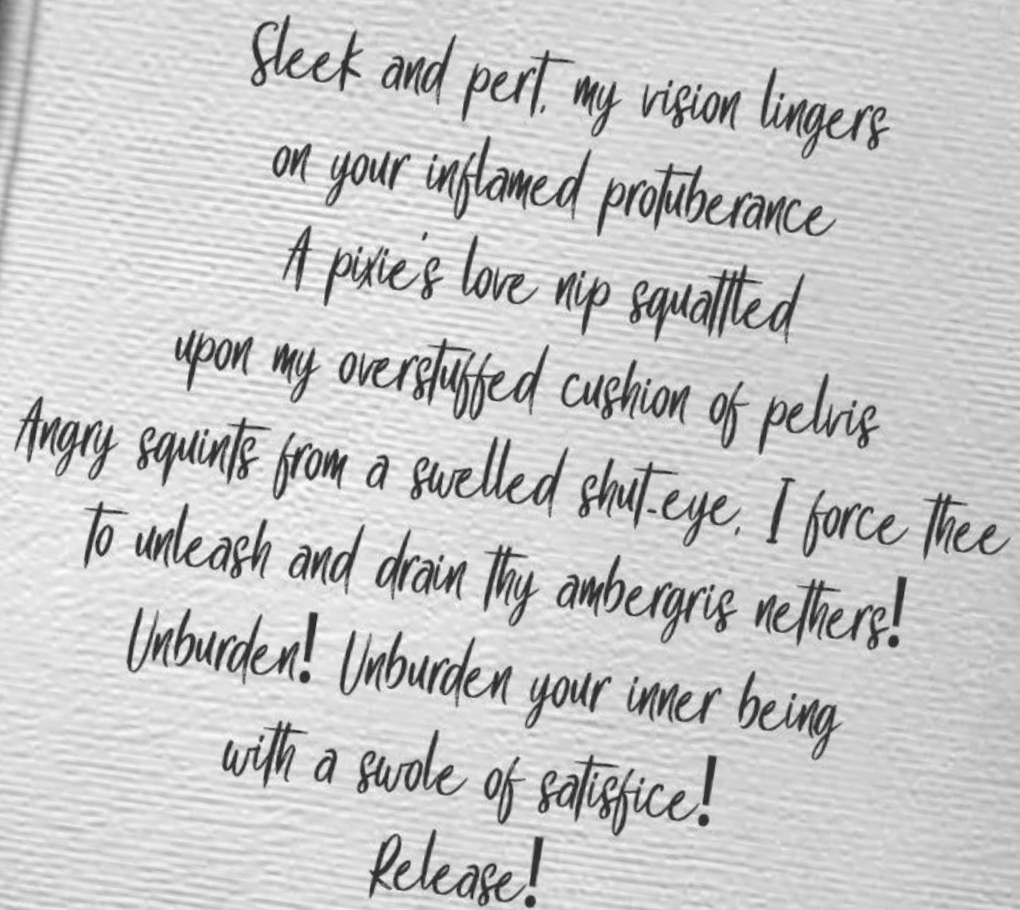 Sleek and pert, my vision lingers
on your inflamed protuberance
A pixie's love nip squattted
upon my overstuffed cushion of pelvis
Angry squints from a swelled shut-eye, I force thee
to unleash and drain thy ambergris nethers!
Unburden! Unburden your inner being
with a swole of satisfice!
Release!